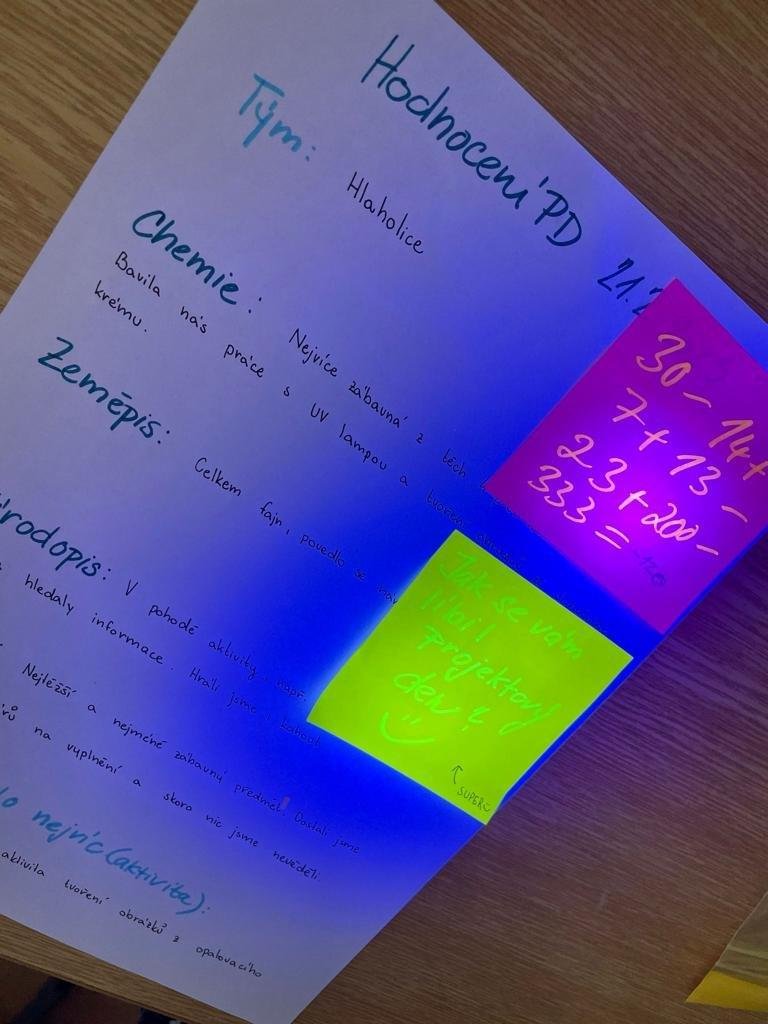 Hodnocení PD 21.2
Tým: Hlaholice
Chemie: Nejvíce zábavná z těch
Bavila nás práce s UV lampou a tvoření
krému.
Zeměpis: Celkem fajn, povedlo se nám
rodopis: V pohodě aktivity, např.
hledaly informace. Hráli jsme i kahoot
Nejtěžší a nejméně zábavný předmět. Dostali jsme
na vyplnění a skoro nic jsme nevěděli.
nejvíc (aktivita):
tvoření obrázků z opalovacího
30 - 14 +
7 + 13 -
23 + 200 -
333 =
Jak se vám
líbil
projektový
den?
↑
SUPER